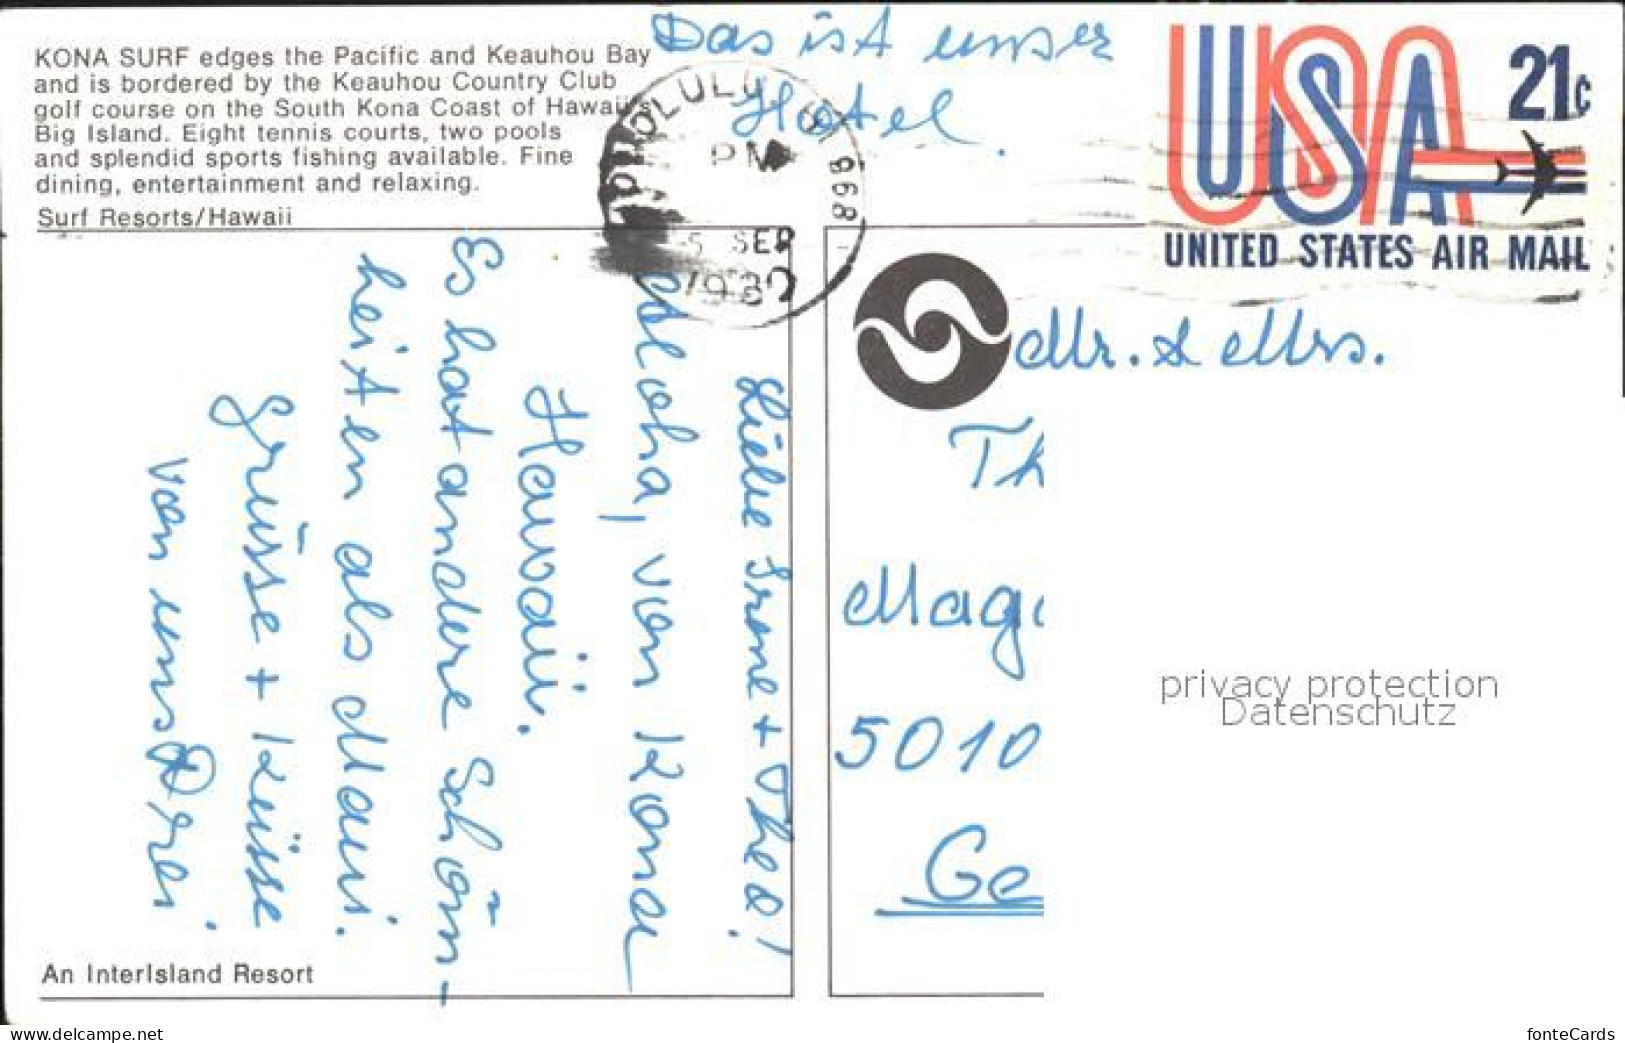 KONA SURF edges the Pacific and Keauhou Bay
and is bordered by the Keauhou Country Club
golf course on the South Kona Coast of Hawaii's
Big Island. Eight tennis courts, two pools
and splendid sports fishing available. Fine
dining, entertainment and relaxing.
Surf Resorts/Hawaii
Das ist unser
Hotel.
HONOLULU
PM
5 SEP
968
21c
USA
UNITED STATES AIR MAIL
Liebe Irene + Theo!
Aloha, von Kona
Hawaii.
Es hat andere Schön-
heiten als Maui.
Grüsse + Küsse
von uns Drei.
Mr. & Mrs.
Th
Mag
5010
Ge
An InterIsland Resort
privacy protection
Datenschutz
www.delcampe.net
fonteCards